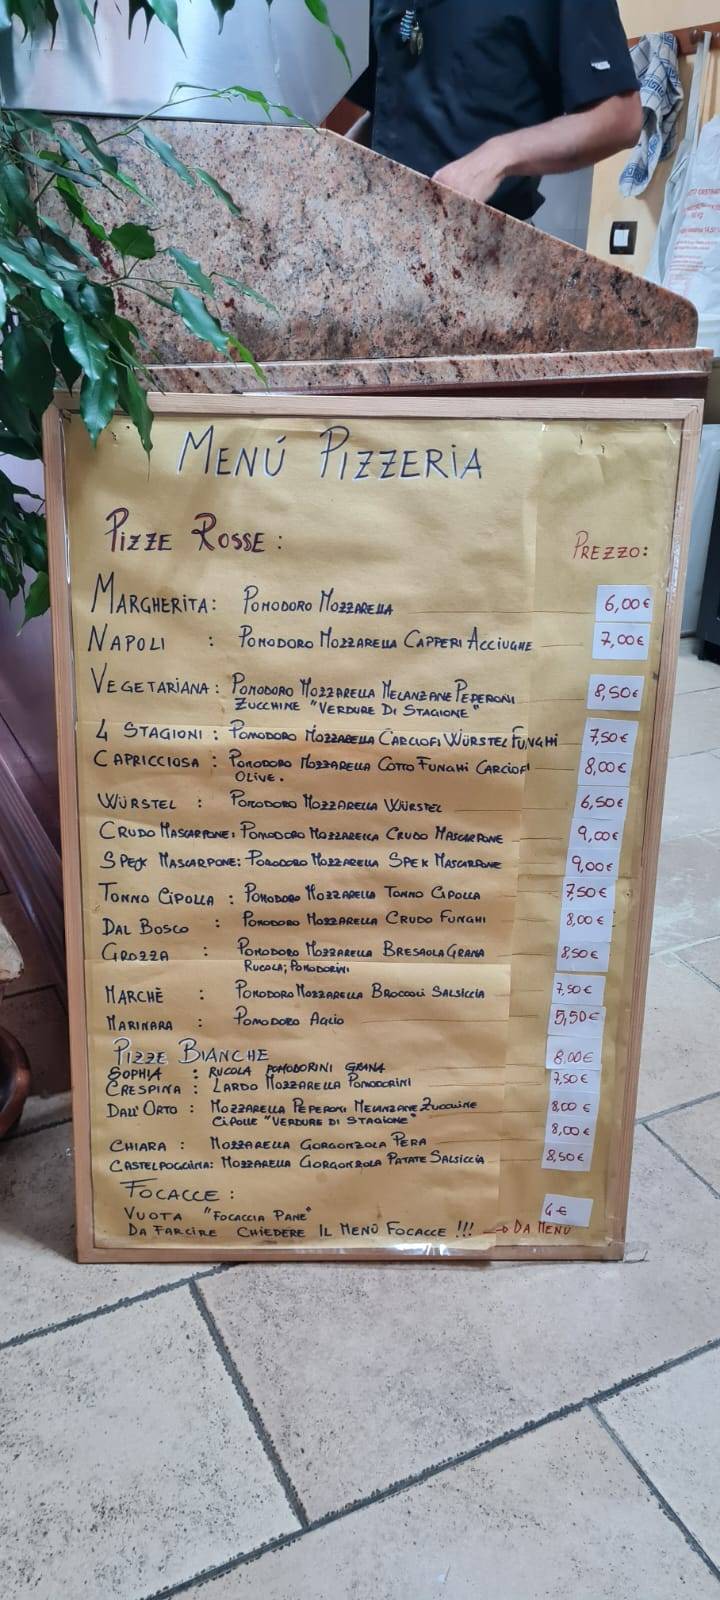 MENÚ PIZZERIA
PIZZE ROSSE : PREZZO:
MARGHERITA: POMODORO MOZZARELLA 6,00€
NAPOLI : POMODORO MOZZARELLA CAPPERI ACCIUGHE 7,00€
VEGETARIANA: POMODORO MOZZARELLA MELANZANE PEPERONI 8,50€
ZUCCHINE "VERDURE DI STAGIONE"
4 STAGIONI : POMODORO MOZZARELLA CARCIOFI WÜRSTEL FUNGHI 7,50€
CAPRICCIOSA : POMODORO MOZZARELLA COTTO FUNGHI CARCIOFI 8,00€
OLIVE.
WÜRSTEL : POMODORO MOZZARELLA WÜRSTEL 6,50€
CRUDO MASCARPONE: POMODORO MOZZARELLA CRUDO MASCARPONE 9,00€
SPEK MASCARPONE: POMODORO MOZZARELLA SPEK MASCARPONE 9,00€
TONNO CIPOLLA : POMODORO MOZZARELLA TONNO CIPOLLA 7,50€
DAL BOSCO : POMODORO MOZZARELLA CRUDO FUNGHI 8,00€
GROZZA : POMODORO MOZZARELLA BRESAOLA GRANA 8,50€
RUCOLA; POMODORINI
MARCHÈ : POMODORO MOZZARELLA BROCCOLI SALSICCIA 7,50€
MARINARA : POMODORO AGLIO 5,50€
PIZZE BIANCHE
SOPHIA : RUCOLA POMODORINI GRANA 8,00€
CRESPINA : LARDO MOZZARELLA POMODORINI 7,50€
DALL'ORTO : MOZZARELLA PEPERONI MELANZANE ZUCCHINE 8,00€
CIPOLLE "VERDURE DI STAGIONE"
CHIARA : MOZZARELLA GORGONZOLA PERA 8,00€
CASTELPOGGINA: MOZZARELLA GORGONZOLA PATATE SALSICCIA 8,50€
FOCACCE :
VUOTA "FOCACCIA PANE" 4€
DA FARCIRE CHIEDERE IL MENÙ FOCACCE !!! → DA MENÙ